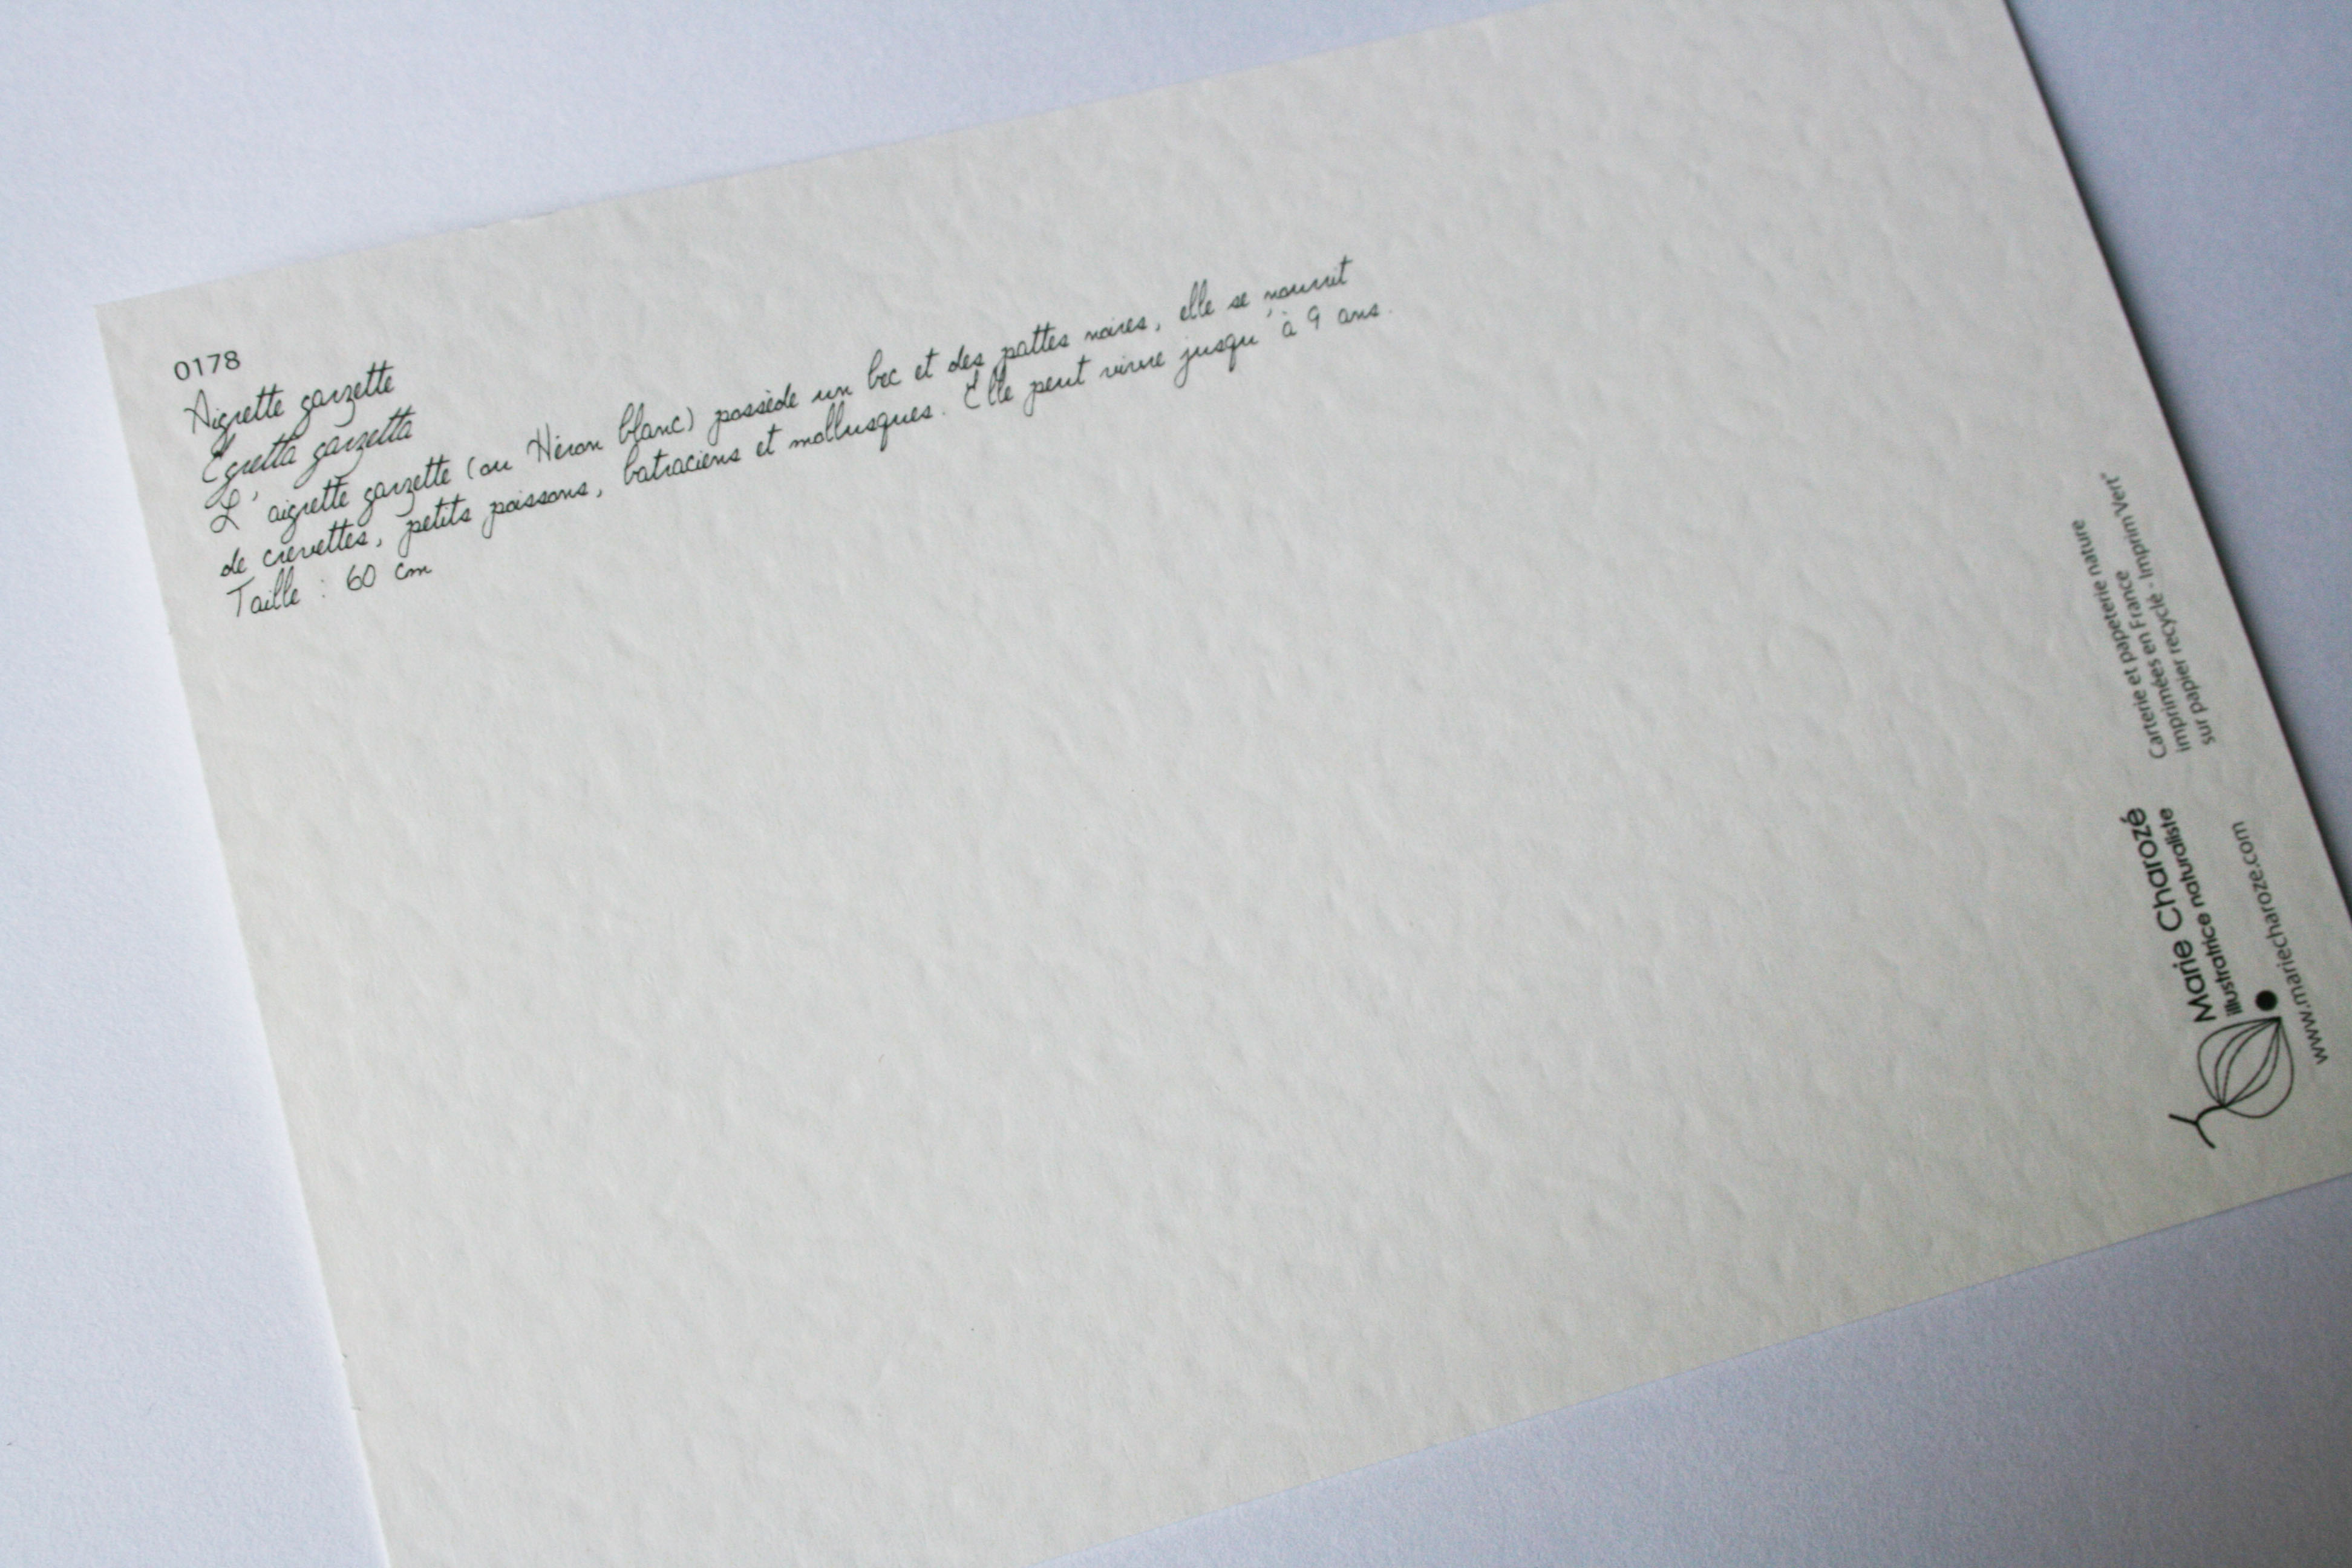 0178
Aigrette garzette
Egretta garzetta
L'aigrette garzette (ou Héron blanc) possède un bec et des pattes noires, elle se nourrit
de crevettes, petits poissons, batraciens et mollusques. Elle peut vivre jusqu'à 9 ans.
Taille : 60 cm
Marie Charozé
illustratrice naturaliste
www.mariecharoze.com
Carterie et papeterie nature
imprimées en France
sur papier recyclé - Imprim'Vert®